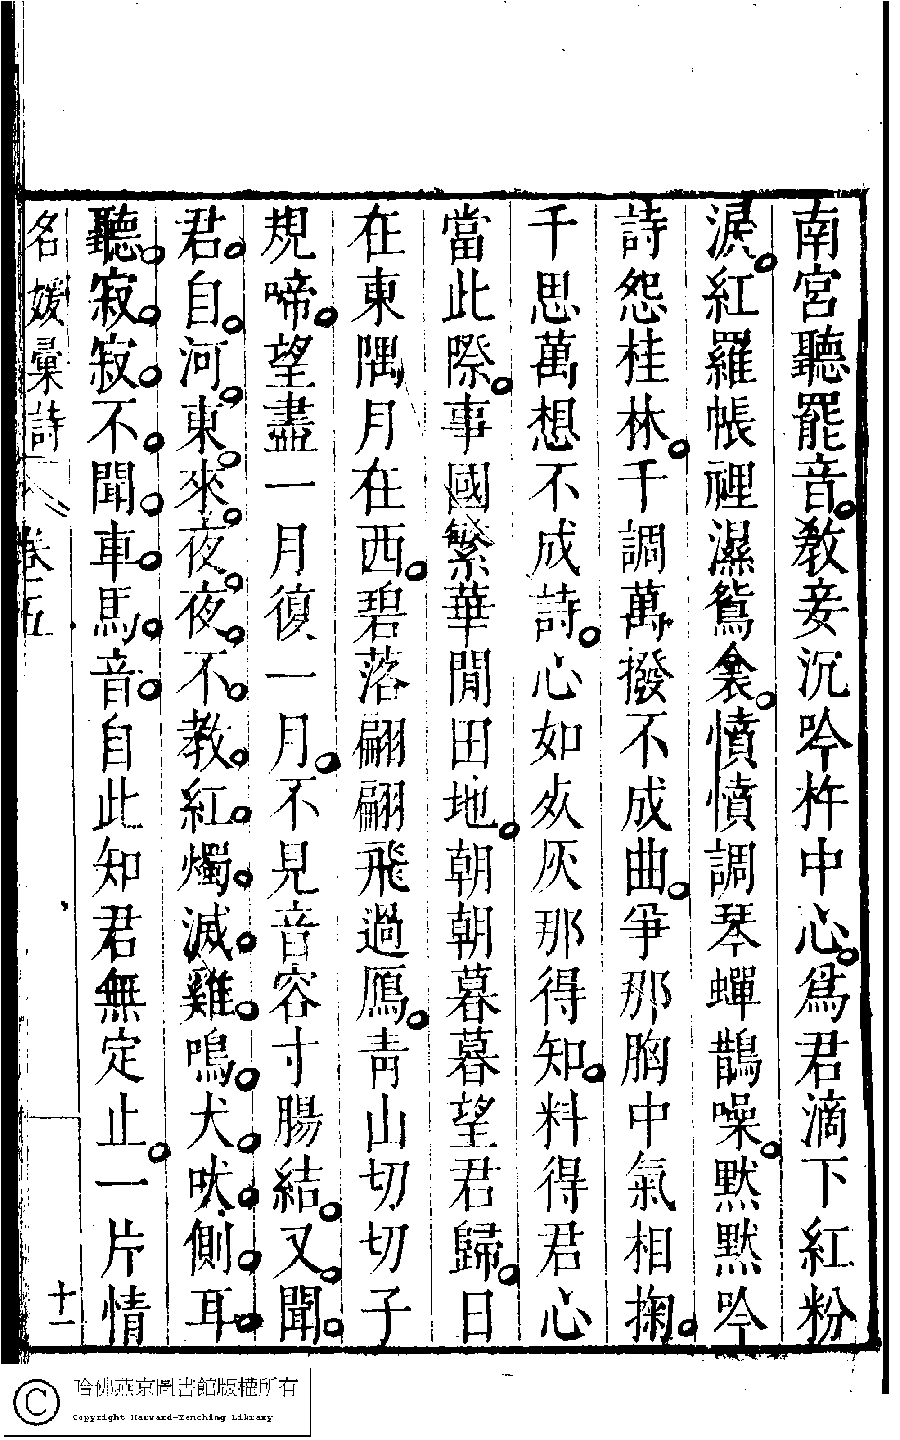 南宮聽罷音教妾沉吟杵中心爲君滴下紅粉
淚紅羅帳裡濕鴛衾憤憤調琴蟬鵲噪黙黙吟
詩怨桂林千調萬撥不成曲爭那胸中氣相掬
千思萬想不成詩心如灰那得知料得君心
當此際事國繁華閒田地朝朝暮暮望君歸日
在東隅月在西碧落翩翩飛過鴈青山切切子
規啼望盡一月復一月不見音容寸腸結又聞
君自河東來夜夜不教紅燭滅雞鳴犬吠側耳
聽寂寂不聞車馬音自此知君無定止一片情
名媛彙詩 卷五 十一
哈佛燕京圖書館版權所有
Copyright Harvard-Yenching Library